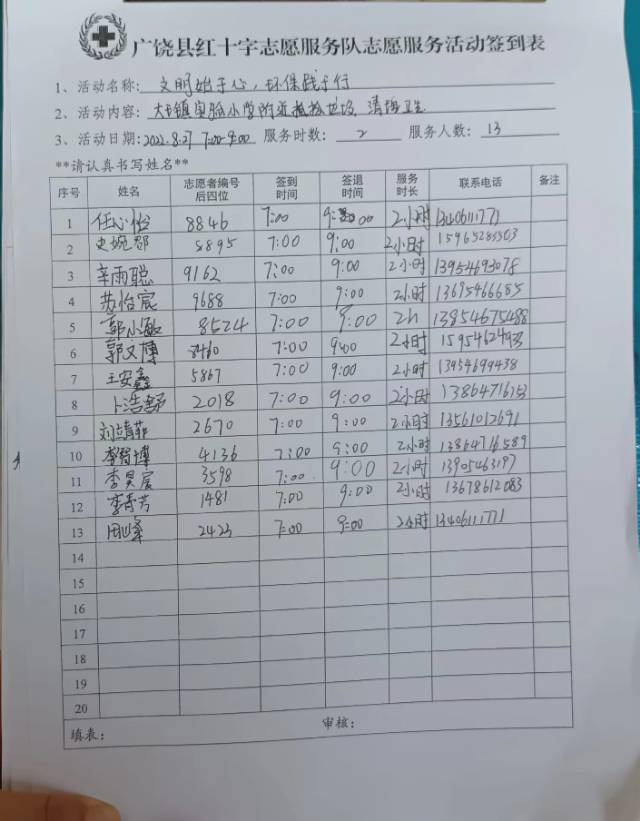 广饶县红十字志愿服务队志愿服务活动签到表
1、活动名称：文明始于心，环保践于行
2、活动内容：大王镇实验小学附近捡拾垃圾，清洁卫生
3、活动日期：2022.8.27 7:00-9:00 服务时数：2 服务人数：13
**请认真书写姓名**
序号 姓名 志愿者编号后四位 签到时间 签退时间 服务时长 联系电话 备注
1 任心怡 8846 7:00 9:00 2小时 13406111771
2 史婉郡 5895 7:00 9:00 2小时
3 辛雨聪 9162 7:00 9:00 2小时 13954693078
4 苏怡宸 9688 7:00 9:00 2小时 13675466685
5 郭小敏 8524 7:00 9:00 2h 13854675488
6 郭文博 8460 7:00 9:00 2小时
7 王安鑫 5867 7:00 9:00 2小时 13954699438
8 卜浩舒 2018 7:00 9:00 2小时
9 刘靖菲 2670 7:00 9:00 2小时 13561012691
10 李智博 4136 7:00 9:00 2小时 13864716589
11 李昊宸 3598 7:00 9:00 2小时 13905463197
12 李奇芳 1481 7:00 9:00 2小时 13678612083
13 7:00 9:00 2小时 13406111771
14
15
16
17
18
19
20
填表： 审核：